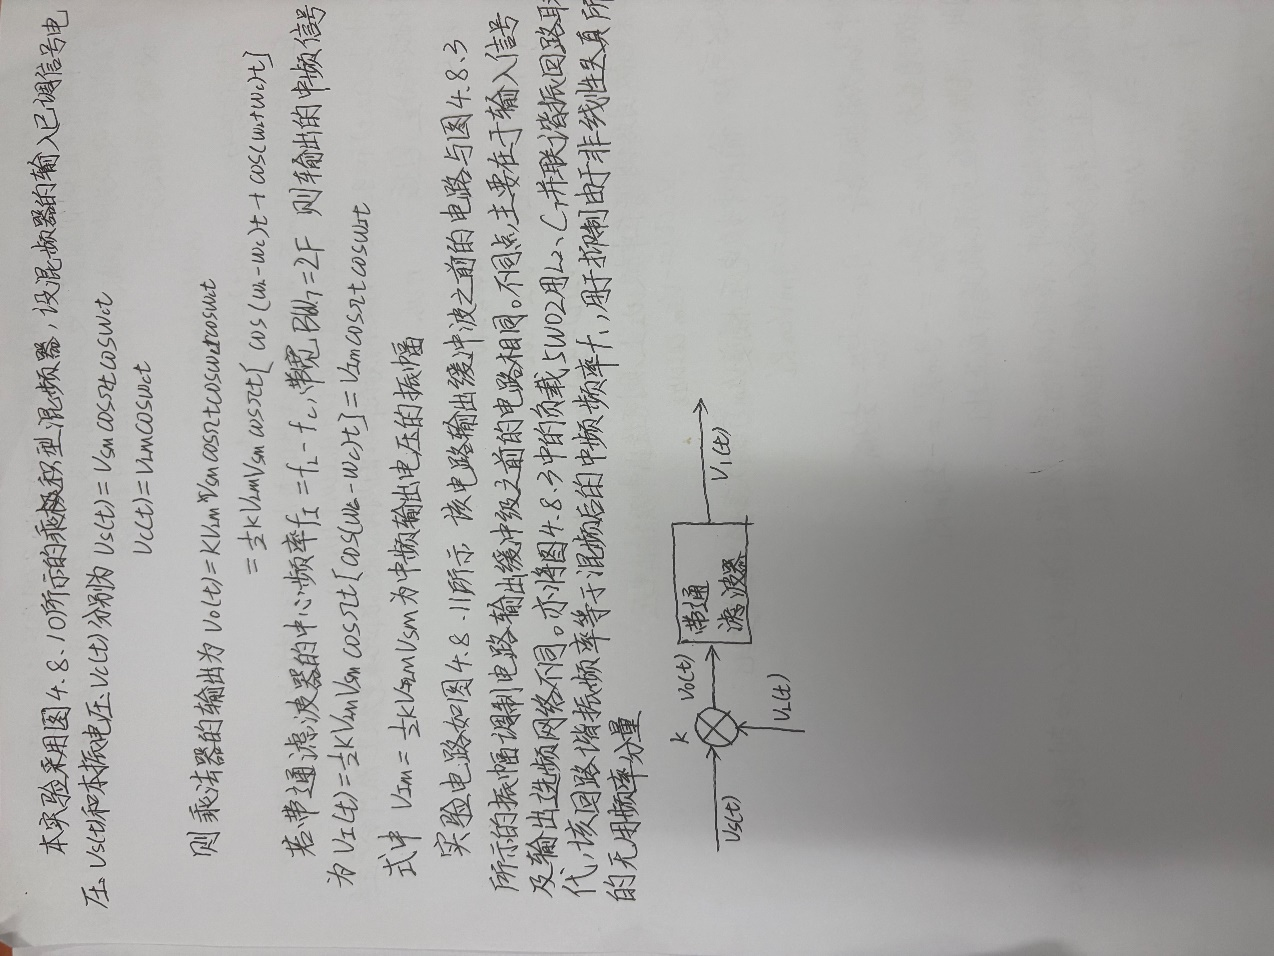 本实验采用图4.8.10所示的乘极积型混频器，设混频器的输入已调信号电
压 Us(t)和本振电压 Uc(t)分别为 Us(t)=Vsm cosΩt cosWct
Uc(t)=VLmcosWct
则乘法器的输出为 Uo(t)=KVLmVsm cosΩt cosWLt cosWct
=½KVLmVsm cosΩt[cos(WL-Wc)t+cos(WL+Wc)t]
若带通滤波器的中心频率fI=fL-fc,带宽BW₇=2F 则输出的中频信号
为 UI(t)=½KVLmVsm cosΩt[cos(WL-Wc)t]=VImcosΩt cosWIt
式中 VIm=½KVLmVsm为中频输出电压的振幅
实验电路如图4.8.11所示 该电路输出缓冲波之前的电路与图4.8.3
所示的振幅调制电路输出缓冲级之前的电路相同。不同点主要在于输入信号
及输出选频网络不同。亦将图4.8.3中的负载5W02用L2、C7并联谐振回路取
代,该回路谐振频率等于混频后的中频频率f1,用于抑制由于非线性失真所
的无用频率分量
Us(t)
K
UL(t)
Vo(t)
带通
滤波器
V1(t)